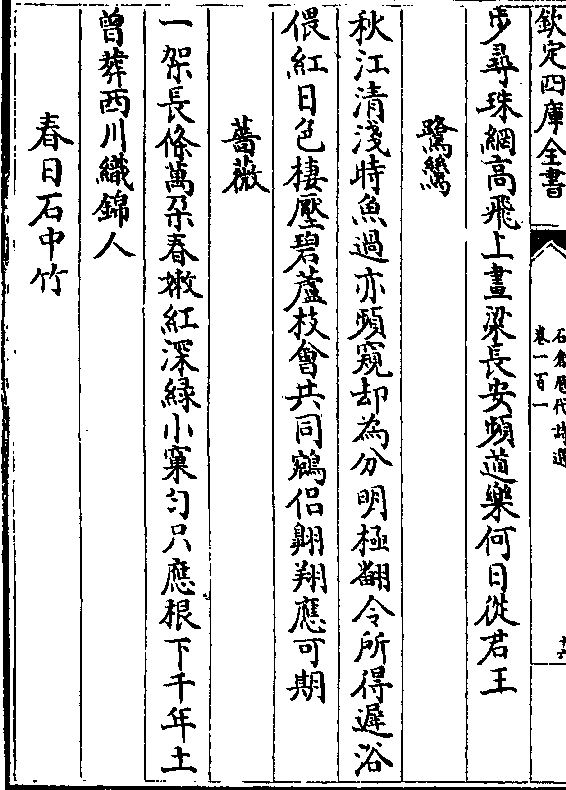 欽定四庫全書
石倉歷代詩選
卷一百一
步尋珠網高飛上畫梁長安頻道樂何日從君王
鷺鷥
秋江清淺時魚過亦頻窺却為分明極翻令所得遲浴
偎紅日色棲壓碧蘆枝會共同鵷侣翺翔應可期
薔薇
一架長條萬朶春嫩紅深緑小窠匀只應根下千年土
曾葬西川織錦人
春日石中竹